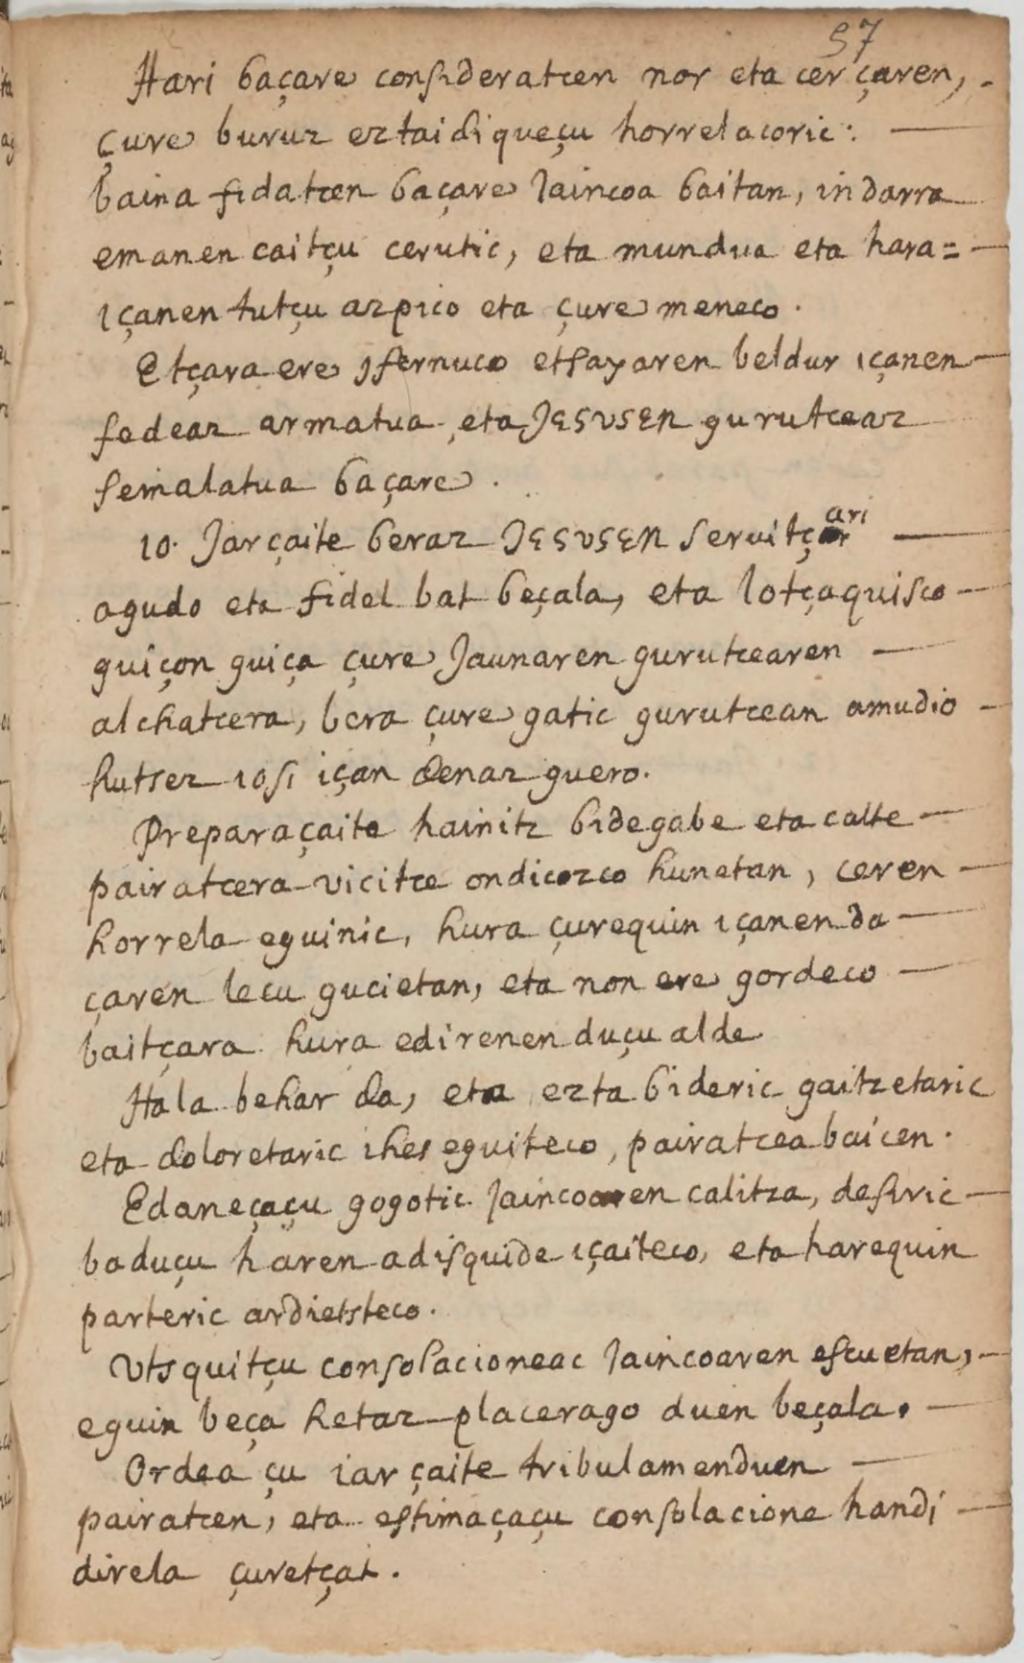 57
Hari baçare consideratcen nor eta cer çaren,
çure buruz eztaidiqueçu horrelacoric:
baina fidatcen baçare Jaincoa baitan, indarra
emanen caitçu cerutic, eta mundua eta hara=
içanen tutçu azpico eta çure meneco.
Etçara ere ifernuco etsayaren beldur içanen
fedeaz armatua, eta JESUSEN gurutceaz
seinalatua baçare.
10. Jarçaite beraz JESUSEN servitçari
agudo eta fidel bat beçala, eta lotçaquisco
guiçon guiça çure Jaunaren gurutcearen
alchatcera, bera çure gatic gurutcean amudio
hutsez iosi içan denaz guero.
Preparaçaite hainitz bidegabe eta calte
pairatcera vicitce ondicozco hunetan, ceren
horrela eguinic, hura çurequin içanen da
çaren lecu gucietan, eta non ere gordeco
baitçara hura edirenen duçu alde
Hala behar da, eta ezta bideric gaitzetaric
eta doloretaric ihes eguiteco, pairatcea baicen.
Edaneçaçu gogotic Jaincoaren calitza, desiric
baduçu haren adisquide içaiteco, eta harequin
parteric ardietsteco.
Utsquitçu consolacioneac Jaincoaren escuetan,
eguin beça hetaz placerago duen beçala.
Ordea çu iarçaite tribulamenduen
pairatcen, eta estimaçaçu consolacione handi
direla çuretçat.